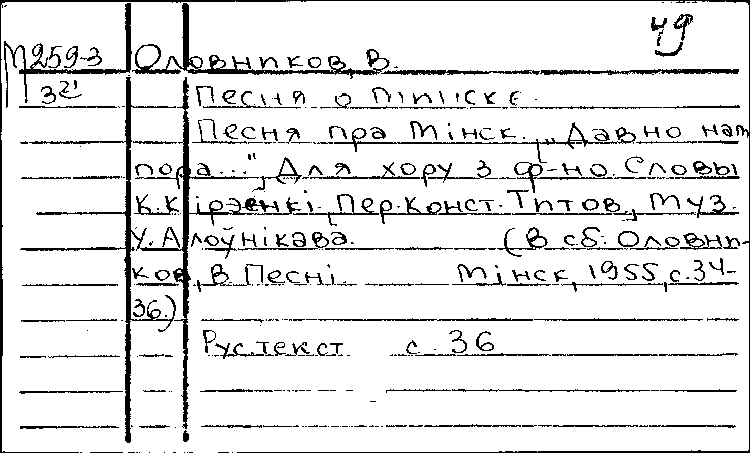 49
М259-3 Оловников, В.
32' Песня о Минске.
Песня пра Мінск. "Давно нам
пора...", Для хору з ф-но. Словы
К. Кірэенкі, Пер. Конст. Титов, Муз.
У. Алоўнікава. (В сб: Оловни-
ков, В Песні. Мінск, 1955, с.34-
36.)
Рус.текст с. 36